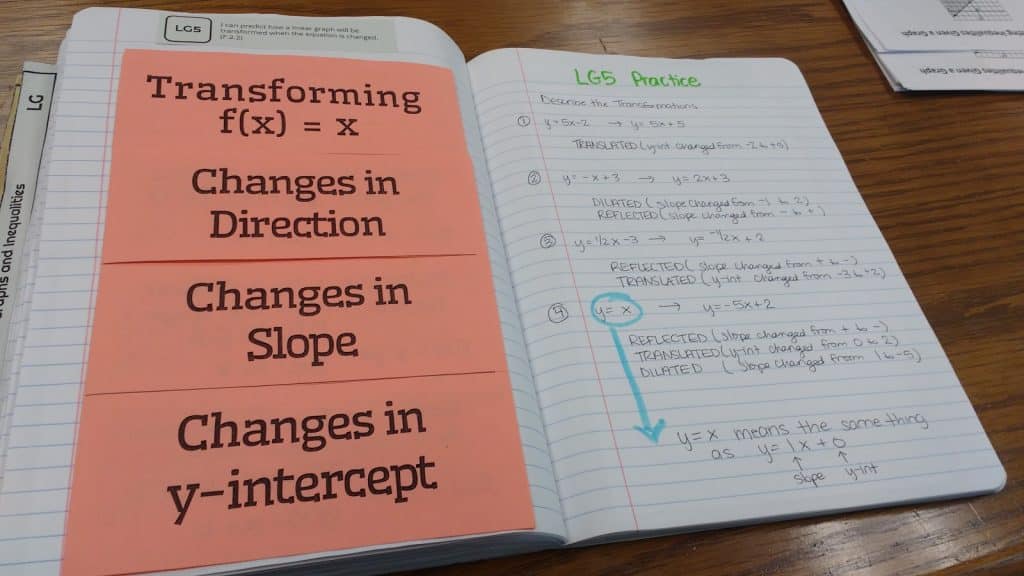 LG5
I can predict how a linear graph will be
transformed when the equation is changed.
(F.2.2)
Transforming
f(x) = x
Changes in
Direction
Changes in
Slope
Changes in
y-intercept
LG
raphs and Inequalities
LG5 Practice
Describe the Transformations
① y=5x-2 → y=5x+5
TRANSLATED (y-int changed from -2 to +5)
② y=-x+3 → y=2x+3
DILATED (slope changed from -1 to 2)
REFLECTED (slope changed from - to +)
③ y=1/2x-3 → y=-1/2x+2
REFLECTED (slope changed from + to -)
TRANSLATED (y-int changed from -3 to +2)
④ y=x → y=-5x+2
REFLECTED (slope changed from + to -)
TRANSLATED (y-int changed from 0 to 2)
DILATED (slope changed from 1 to -5)
y=x means the same thing
as y=1x+0
↑ ↑
slope y-int
Given a Graph
qualities Given a Graph